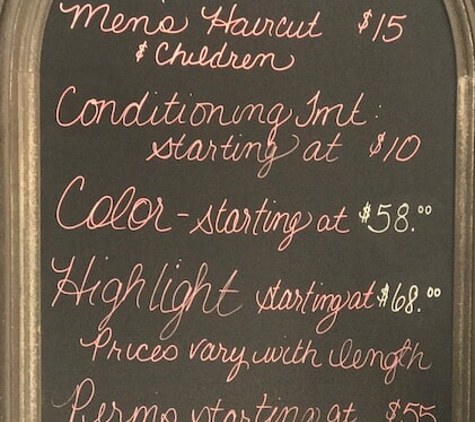 Mens Haircut $15
& Children
Conditioning Tmt:
starting at $10
Color - starting at $58.00
Highlight starting at $68.00
Prices vary with length
Perms starting at $55